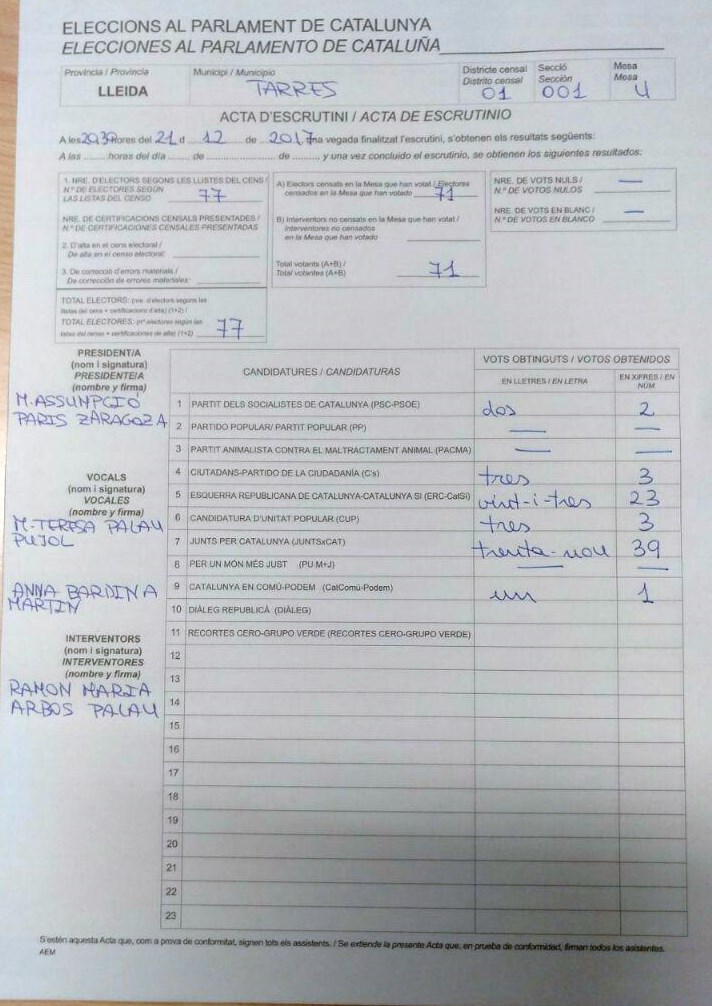 ELECCIONS AL PARLAMENT DE CATALUNYA
ELECCIONES AL PARLAMENTO DE CATALUÑA
Província / Provincia
LLEIDA
Municipi / Municipio
TARRES
Districte censal
Distrito censal
01
Secció
Sección
001
Mesa
Mesa
U
ACTA D'ESCRUTINI / ACTA DE ESCRUTINIO
A les 20:30 hores del 21 d 12 de 2017 na vegada finalitzat l'escrutini, s'obtenen els resultats següents:
A las ........ horas del día ........ de ........ de ........ y una vez concluido el escrutinio, se obtienen los siguientes resultados:
1. NRE. D'ELECTORS SEGONS LES LLISTES DEL CENS /
N.º DE ELECTORES SEGÚN
LAS LISTAS DEL CENSO 77
NRE. DE CERTIFICACIONS CENSALS PRESENTADES /
N.º DE CERTIFICACIONES CENSALES PRESENTADAS
2. D'alta en el cens electoral /
De alta en el censo electoral:
3. De correcció d'errors materials /
De corrección de errores materiales:
TOTAL ELECTORS: (nre. d'electors segons les
llistes del cens + certificacions d'alta) (1+2) /
TOTAL ELECTORES: (nº electores según las
listas del censo + certificaciones de alta) (1+2) 77
A) Electors censats en la Mesa que han votat / Electores
censados en la Mesa que han votado 71
B) Interventors no censats en la Mesa que han votat /
Interventores no censados
en la Mesa que han votado
Total votants (A+B) /
Total votantes (A+B) 71
NRE. DE VOTS NULS / —
N.º DE VOTOS NULOS
NRE. DE VOTS EN BLANC / —
N.º DE VOTOS EN BLANCO
PRESIDENT/A
(nom i signatura)
PRESIDENTE/A
(nombre y firma)
M. ASSUMPCIÓ
PARIS ZARAGOZA
VOCALS
(nom i signatura)
VOCALES
(nombre y firma)
M. TERESA PALAU
PUJOL
ANNA BARDINA
MARTIN
INTERVENTORS
(nom i signatura)
INTERVENTORES
(nombre y firma)
RAMON MARIA
ARBOS PALAU
CANDIDATURES / CANDIDATURAS
VOTS OBTINGUTS / VOTOS OBTENIDOS
EN LLETRES / EN LETRA
EN XIFRES / EN NÚM
1 PARTIT DELS SOCIALISTES DE CATALUNYA (PSC-PSOE) dos 2
2 PARTIDO POPULAR/ PARTIT POPULAR (PP) — —
3 PARTIT ANIMALISTA CONTRA EL MALTRACTAMENT ANIMAL (PACMA) — —
4 CIUTADANS-PARTIDO DE LA CIUDADANÍA (C's) tres 3
5 ESQUERRA REPUBLICANA DE CATALUNYA-CATALUNYA SI (ERC-CatSí) vint-i-tres 23
6 CANDIDATURA D'UNITAT POPULAR (CUP) tres 3
7 JUNTS PER CATALUNYA (JUNTSxCAT) trenta-nou 39
8 PER UN MÓN MÉS JUST (PU M+J) — —
9 CATALUNYA EN COMÚ-PODEM (CatComú-Podem) un 1
10 DIÀLEG REPUBLICÀ (DIÀLEG)
11 RECORTES CERO-GRUPO VERDE (RECORTES CERO-GRUPO VERDE)
12
13
14
15
16
17
18
19
20
21
22
23
S'estén aquesta Acta que, com a prova de conformitat, signen tots els assistents. / Se extiende la presente Acta que, en prueba de conformidad, firman todos los asistentes.
AEM